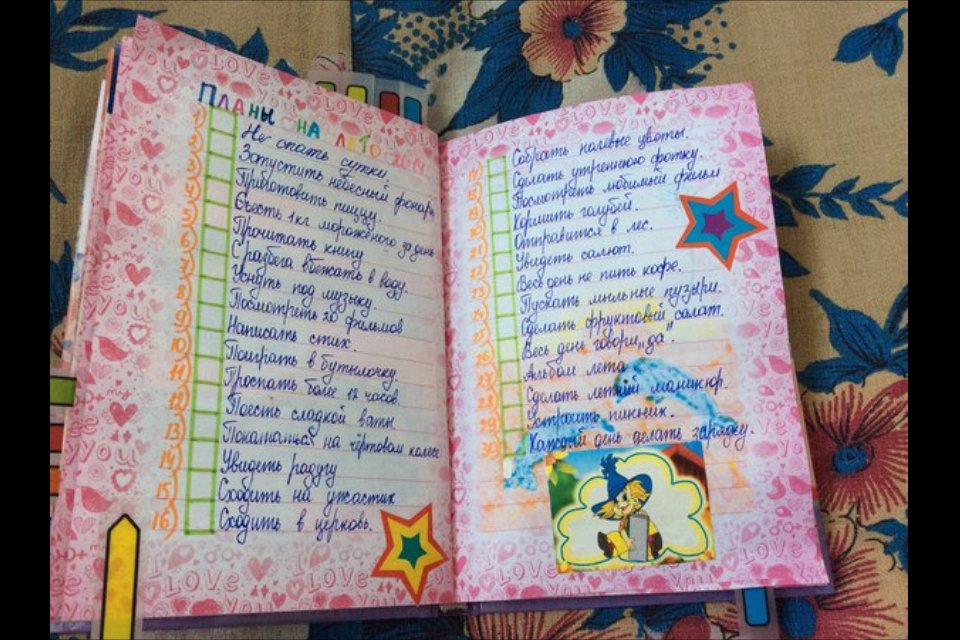 Планы на лето
1) Не спать сутки.
2) Запустить небесный фонарь
3) Приготовить пиццу.
4) Съесть 1 кг мороженого за день
5) Прочитать книгу
6) С разбега вбежать в воду.
7) Уснуть под музыку.
8) Посмотреть 20 фильмов
9) Написать стих.
10) Поиграть в бутылочку.
11) Проспать более 12 часов.
12) Поесть сладкой ваты
13) Покататься на чёртовом колесе
14) Увидеть радугу
15) Сходить на ужастик
16) Сходить в церковь.
Собрать полевые цветы.
Сделать утреннюю фотку.
Посмотреть любимый фильм
Кормить голубей.
Отправится в лес.
Увидеть салют.
Весь день не пить кофе.
Пускать мыльные пузыри.
Сделать фруктовый салат.
Весь день говори „да".
Альбом лета
Сделать летний маникюр.
Устроить пикник.
Каждый день делать зарядку.
LOVE
you